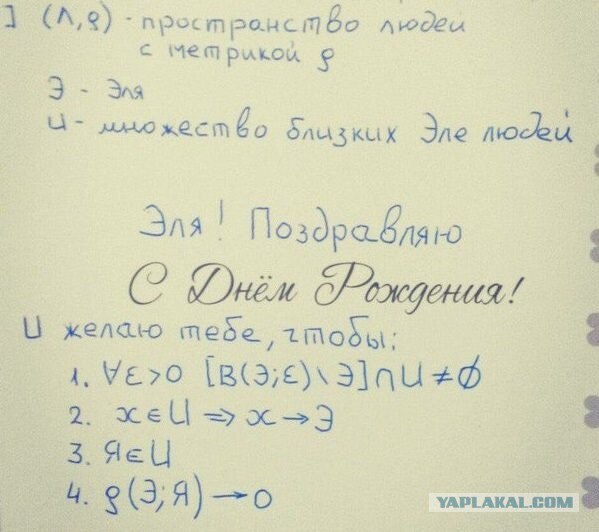 ] (Л,ρ) - пространство людей
с метрикой ρ
Э - Эля
U - множество близких Эле людей
Эля! Поздравляю
С Днём Рождения!
И желаю тебе, чтобы:
1. ∀ε>0 [B(Э;ε)\Э]∩U≠∅
2. x∈U => x→Э
3. Я∈U
4. ρ(Э;Я)→0
YAPLAKAL.COM